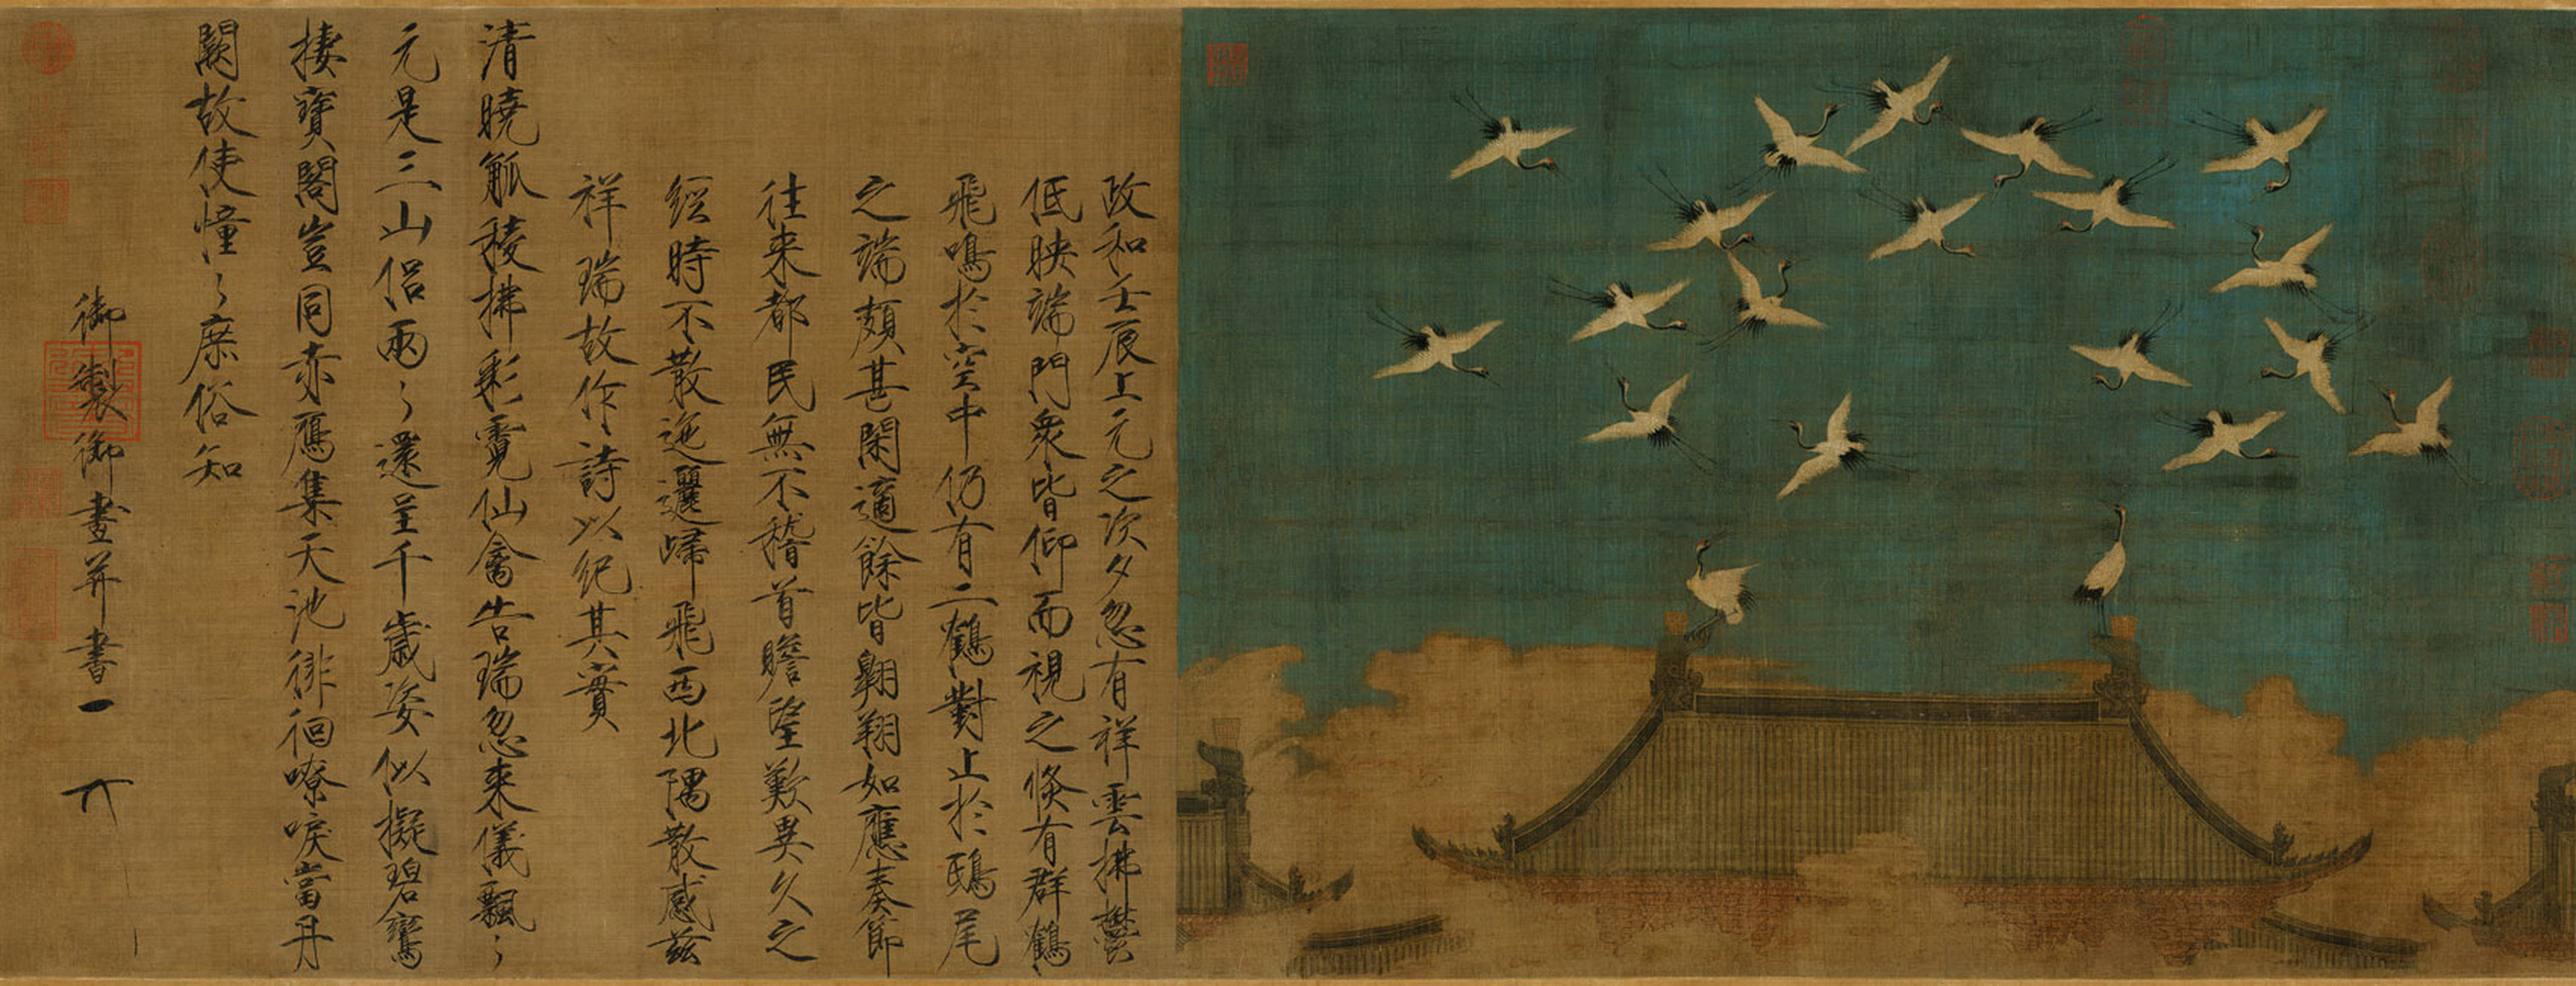 政和壬辰上元之次夕忽有祥雲拂鬱
低映端門衆皆仰而視之倏有群鶴
飛鳴於空中仍有二鶴對止於鴟尾
之端頗甚閑適餘皆翱翔如應奏節
往来都民無不稽首瞻望歎異久之
經時不散迤邐歸飛西北隅散感兹
祥瑞故作詩以紀其實
清曉觚稜拂彩霓仙禽告瑞忽来儀飄〻
元是三山侣兩〻還呈千歳姿似擬碧鸞
棲寶閣豈同赤鴈集天池徘徊嘹唳當丹
闕故使憧〻庶俗知
御製御畫并書